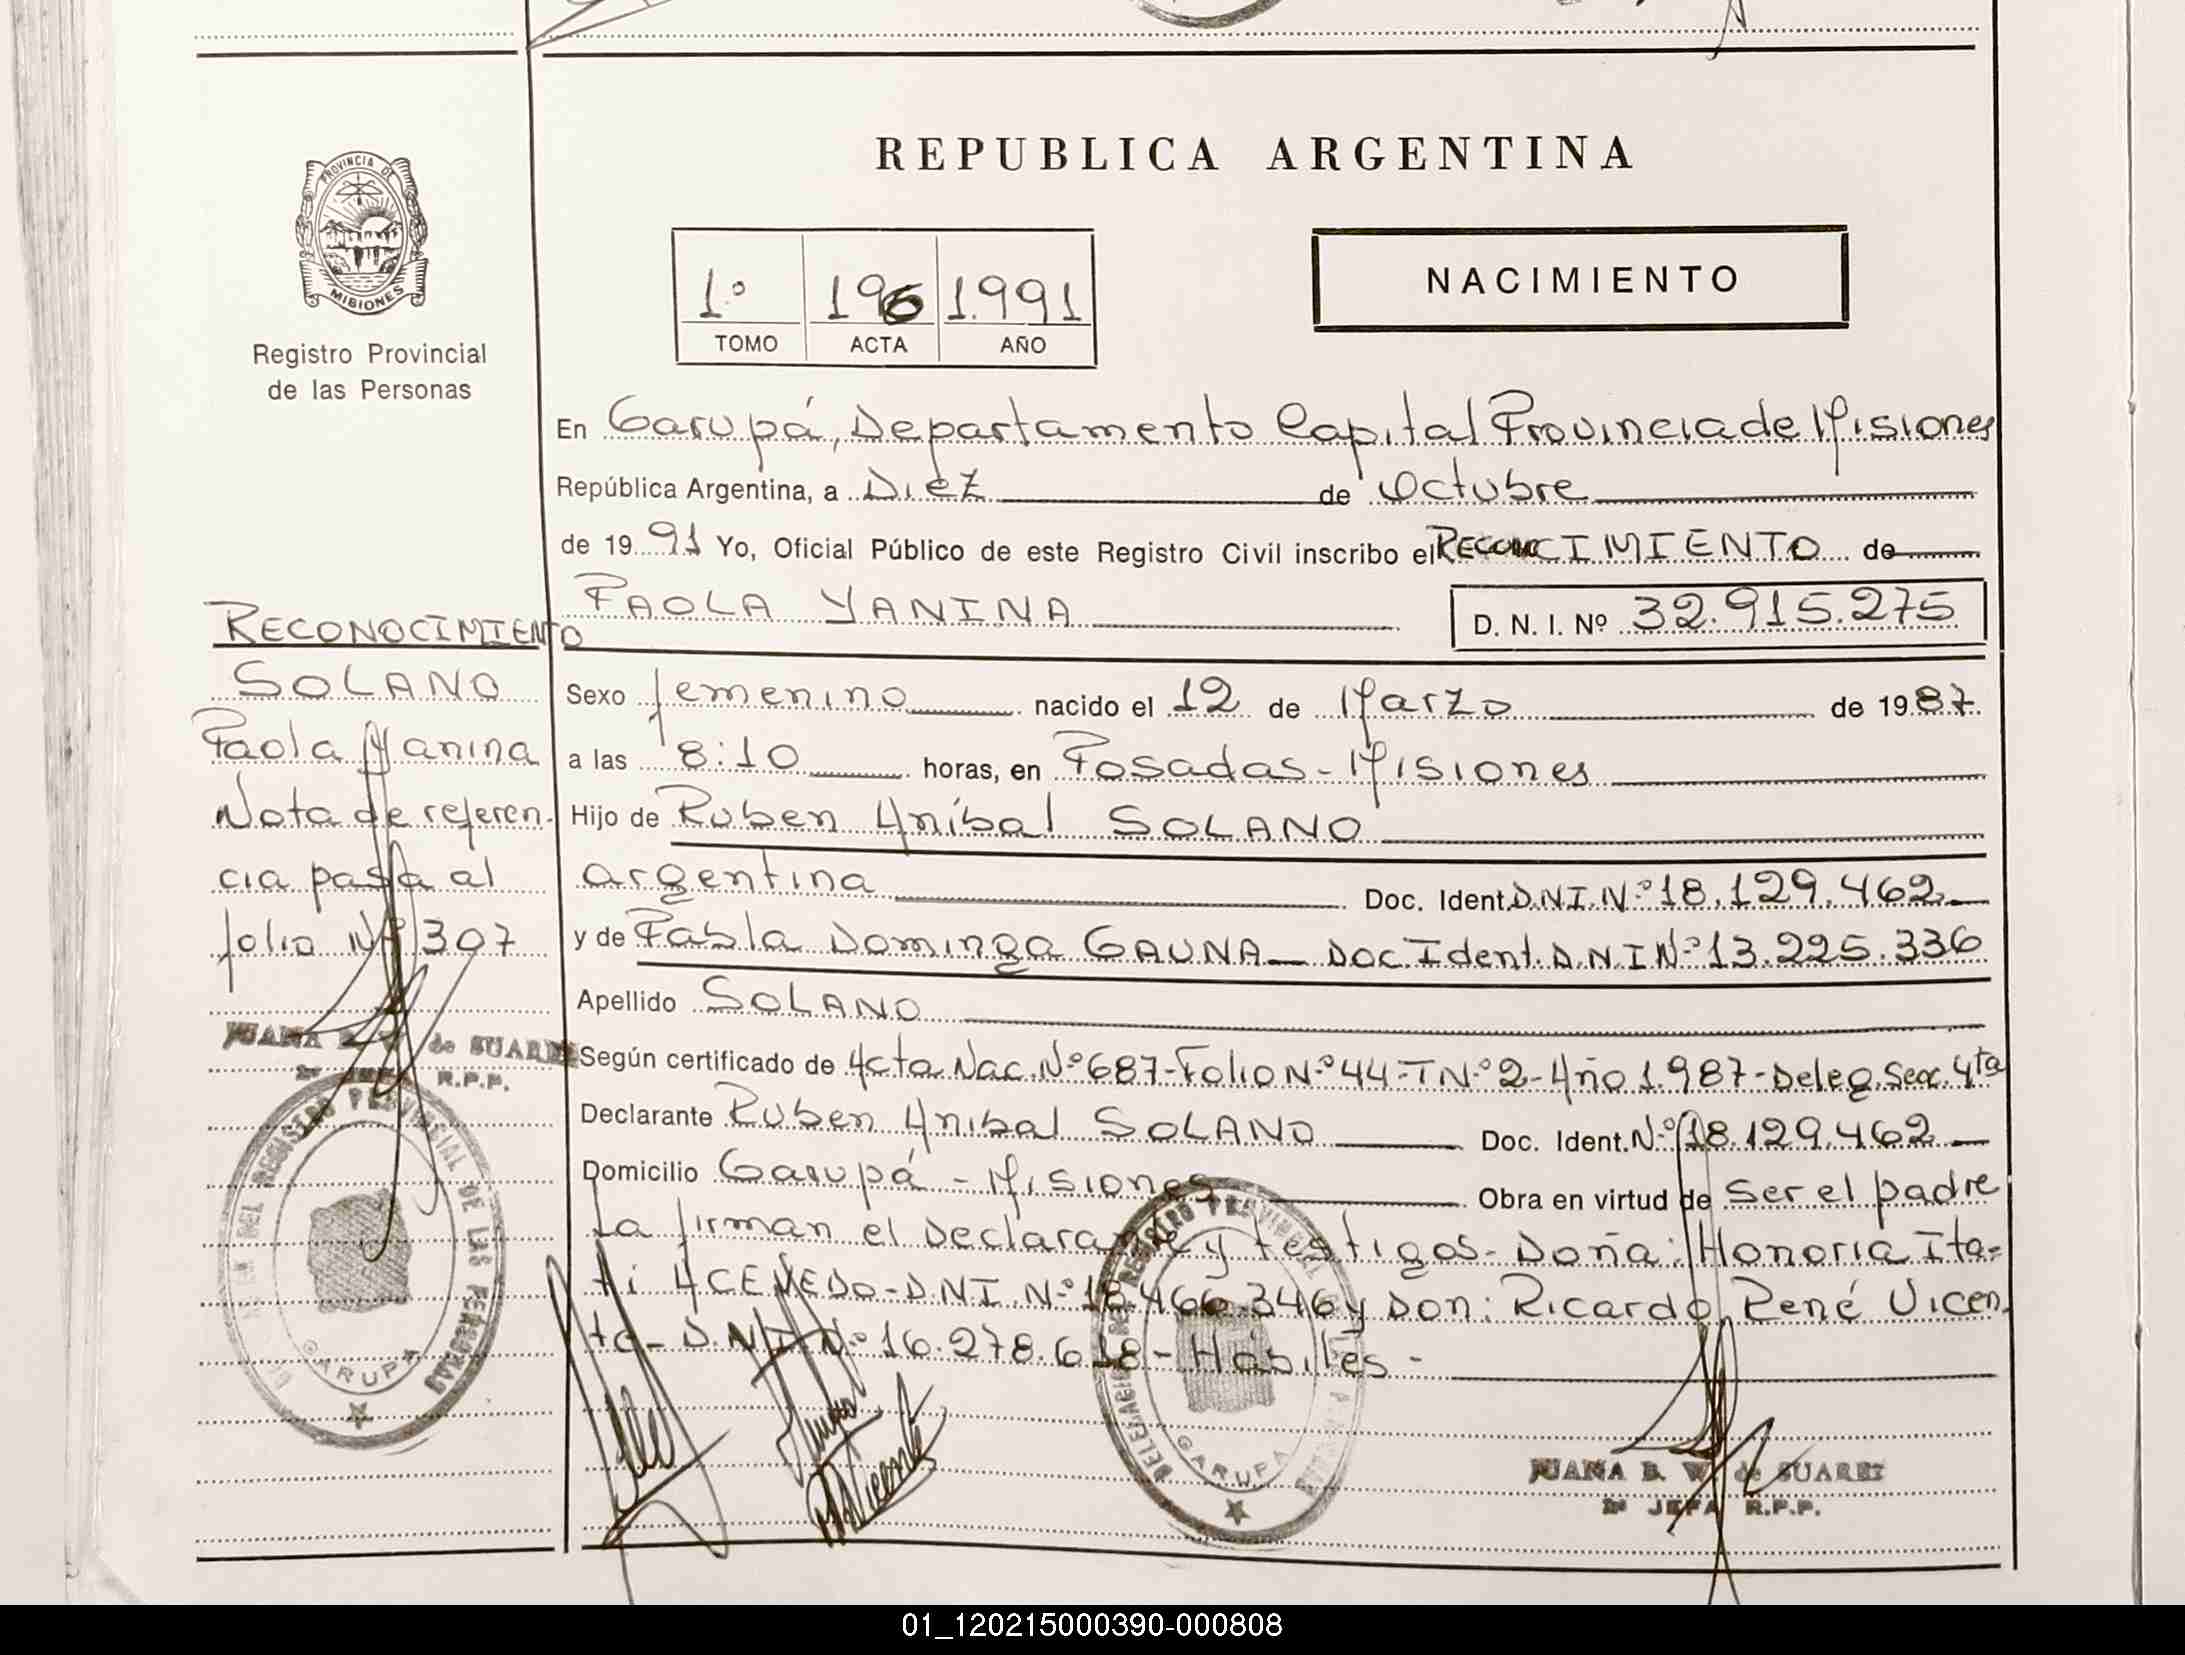 PROVINCIA DE
MISIONES
Registro Provincial
de las Personas
REPUBLICA ARGENTINA
1º 196 1.991
TOMO ACTA AÑO
NACIMIENTO
En Garupá, Departamento Capital Provincia de Misiones
República Argentina, a Diez de Octubre
de 1991 Yo, Oficial Público de este Registro Civil inscribo el RECONOCIMIENTO de
PAOLA YANINA
D. N. I. Nº 32.915.275
Sexo femenino nacido el 12 de Marzo de 1987.
a las 8:10 horas, en Posadas - Misiones
Hijo de Ruben Aníbal SOLANO
argentina Doc. Ident. D.N.I. Nº 18.129.462
y de Pabla Dominga GAUNA - Doc. Ident. D.N.I Nº 13.225.336
Apellido SOLANO
Según certificado de Acta Nac. Nº 687-Folio Nº 44-T Nº 2-Año 1.987-Deleg. Secc. 4ta
Declarante Ruben Anibal SOLANO Doc. Ident. Nº 18.129.462
Domicilio Garupá - Misiones Obra en virtud de ser el padre
La firman el Declarante y testigos - Doña: Honoria Ita=
tí ACEVEDO - D.N.I. Nº 18.466.346 y Don: Ricardo René Vicen-
te - D.N.I Nº 16.278.618 - Hábiles -
JUANA B. W. de SUAREZ
2ª JEFA R.P.P.
GARUPA
RECONOCIMIENTO
SOLANO
Paola Yanina
Nota de referen-
cia pasa al
folio Nº 307
JUANA B. W. de SUAREZ
2ª JEFA R.P.P.
GARUPA
01_120215000390-000808